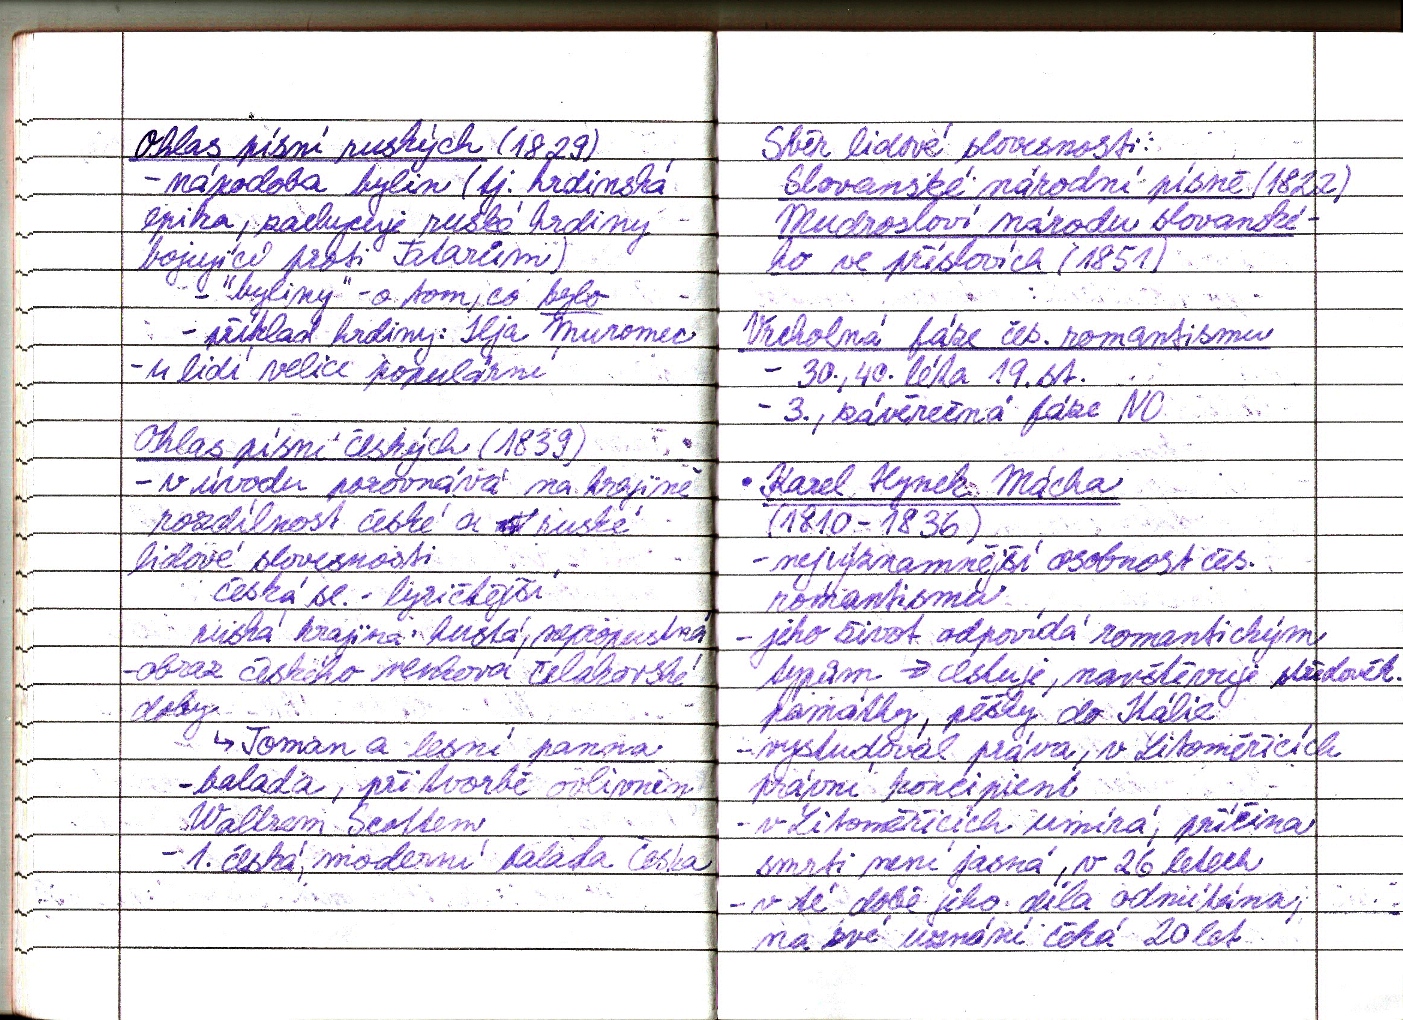 Ohlas písní ruských (1829)
- nápodoba bylin (tj. hrdinská
epika, zachycuje ruské hrdiny
bojující proti Tatarům)
- "byliny" - o tom, co bylo
- příklad hrdiny: Ilja Muromec
- u lidí velice populární
Ohlas písní českých (1839)
- v úvodu porovnává na krajině
rozdílnost české a ruské
lidové slovesnosti
česká sl. - lyričtější
ruská krajina hustá, nepropustná
- obraz českého venkova Čelakovské
doby
↳ Toman a lesní panna
- balada, při tvorbě ovlivněn
Waltrem Scottem
- 1. česká, moderní balada Česka
Sběr lidové slovesnosti:
Slovanské národní písně (1822)
Mudrosloví národu slovanské-
ho ve příslovích (1851)
Vrcholná fáze čes. romantismu
- 30., 40. léta 19. st.
- 3., závěrečná fáze NO
• Karel Hynek Mácha
(1810 - 1836)
- nejvýznamnější osobnost čes.
romantismu
- jeho život odpovídá romantickým
typům → cestuje, navštěvuje středověk.
památky, pěšky do Itálie
- vystudoval práva, v Litoměřicích
právní koncipient
- v Litoměřicích umírá, příčina
smrti není jasná, v 26 letech
- v té době jeho díla odmítána,
na své uznání čeká 20 let